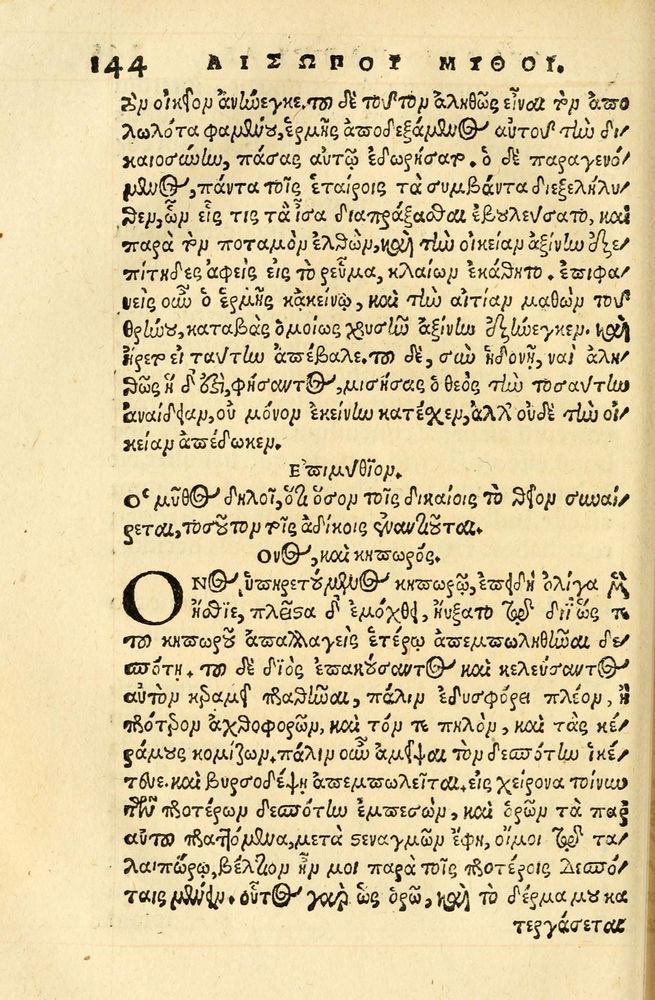 144 ΑΙΣΩΠΟΥ ΜΥΘΟΙ.
τὸν οἰκεῖον ἀνήνεγκε. τοῦ δὲ τοῦτον ἀληθῶς εἶναι τὸν ἀπο
λωλότα φαμένου, ἑρμῆς ἀποδεξάμενος αὐτοῦ τὴν δι-
καιοσύνην, πάσας αὐτῷ ἐδωρήσατο. ὁ δὲ παραγενό-
μενος, πάντα τοῖς ἑταίροις τὰ συμβάντα διεξελήλυ-
θεν, ὧν εἷς τις τὰ ἶσα διαπράξασθαι ἐβουλεύσατο, καὶ
παρὰ τὸν ποταμὸν ἐλθὼν, καὶ τὴν οἰκείαν ἀξίνην ἐξε-
πίτηδες ἀφεὶς εἰς τὸ ῥεῦμα, κλαίων ἐκάθητο. ἐπιφα-
νεὶς οὖν ὁ ἑρμῆς κἀκείνῳ, καὶ τὴν αἰτίαν μαθὼν τοῦ
θρήνου, καταβὰς ὁμοίως χρυσῆν ἀξίνην ἐξήνεγκεν. καὶ
ἤρετο εἰ ταύτην ἀπέβαλε. τοῦ δὲ, σὺν ἡδονῇ, ναὶ ἀλη-
θῶς ἥδ' ἐστὶ, φήσαντος, μισήσας ὁ θεὸς τὴν τοσαύτην
ἀναίδειαν, οὐ μόνον ἐκείνην κατέσχεν, ἀλλ' οὐδὲ τὴν οἰ-
κείαν ἀπέδωκεν.
Επιμύθιον.
Ο μῦθος δηλοῖ, ὅτι ὅσον τοῖς δικαίοις τὸ θεῖον συναί-
ρεται, τοσοῦτον τοῖς ἀδίκοις ἐναντιοῦται.
Ονος, καὶ κηπωρός.
ΟΝος, ὑπηρετούμενος κηπωρῷ, ἐπειδὴ ὀλίγα μὲν
ἤσθιε, πλεῖστα δ' ἐμόχθει, ηὔξατο τῷ διῒ ὥς τε
τοῦ κηπωροῦ ἀπαλλαγεὶς ἑτέρῳ ἀπεμποληθῆναι δε-
σπότῃ. τοῦ δὲ διὸς ἐπακούσαντος καὶ κελεύσαντος
αὐτὸν κεραμεῖ πραθῆναι, πάλιν ἐδυσφόρει πλέον, ἢ
πρότερον ἀχθοφορῶν, καὶ τόν τε πηλὸν, καὶ τὰς κε-
ράμους κομίζων. πάλιν οὖν ἀμεῖψαι τὸν δεσπότην ἱκέ-
τευε. καὶ βυρσοδέψῃ ἀπεμπωλεῖται. εἰς χείρονα τοίνυν
τῶν προτέρων δεσπότην ἐμπεσὼν, καὶ ὁρῶν τὰ παρ'
αὐτοῦ πραττόμενα, μετὰ στεναγμῶν ἔφη, οἴμοι τῷ τα-
λαιπώρῳ, βέλτιον ἦν μοι παρὰ τοῖς προτέροις δεσπό-
ταις μένειν. οὗτος γὰρ ὡς ὁρῶ, καὶ τὸ δέρμα μου κα
τεργάσεται